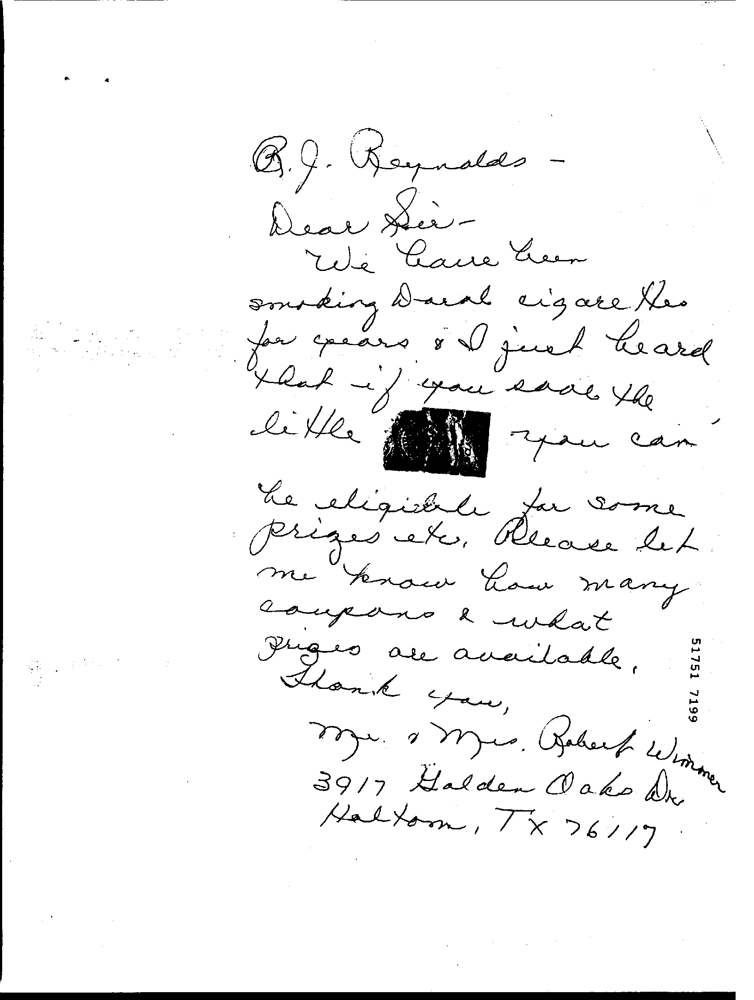 R.J. Reynolds -
Dear Sir -
We have been
smoking Doral cigarettes
for years & I just heard
that if you save the
little you can
be eligible for some
prizes etc. Please let
me know how many
coupons & what
prizes are available.
Thank you,
Mr. & Mrs. Robert Wimmer
3917 Golden Oaks Dr
Haltom, TX 76117
51751 7199